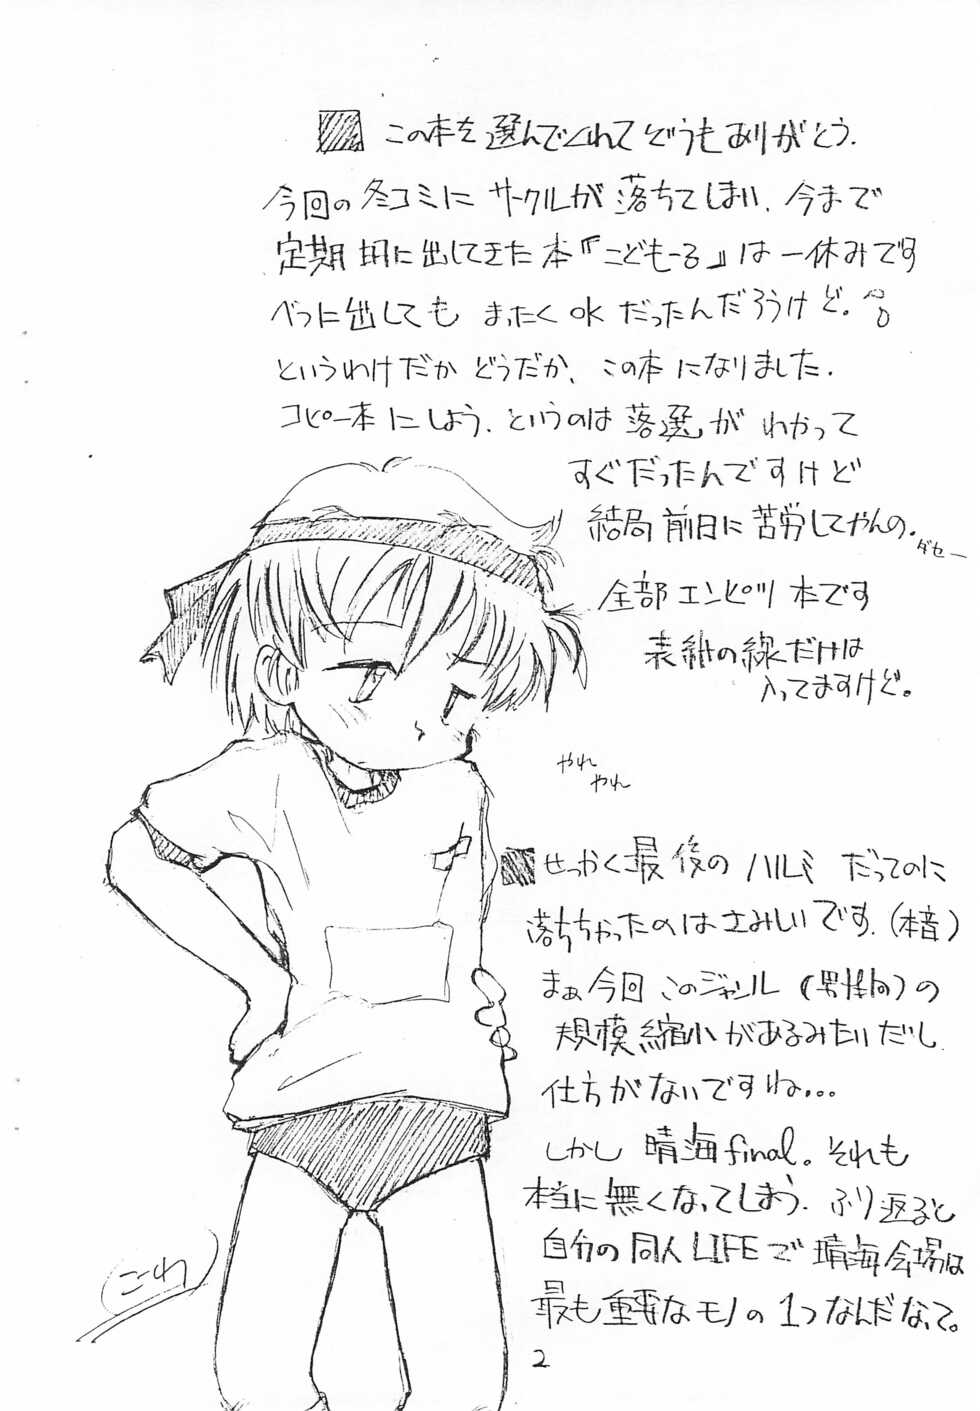 この本を選んでくれてどうもありがとう.
今回の冬コミにサークルが落ちてしまい、今まで
定期的に出してきた本『こどもーる』は一休みです
べつに出しても まったくokだったんだろうけど。
というわけだかどうだか、この本になりました.
コピー本にしよう、というのは落選がわかって
すぐだったんですけど
結局前日に苦労してやんの.
ダセー
全部エンピツ本です
表紙の線だけは
入ってますけど。
やれ
やれ
せっかく最後のハルミだってのに
落ちちゃったのはさみしいです.(本音)
まぁ今回このジャンル(男性向)の
規模縮小があるみたいだし
仕方がないですね...
しかし晴海final。それも
本当に無くなってしまう. ふり返ると
自分の同人LIFEで晴海会場は
最も重要なモノの1つなんだなって。
これ
2